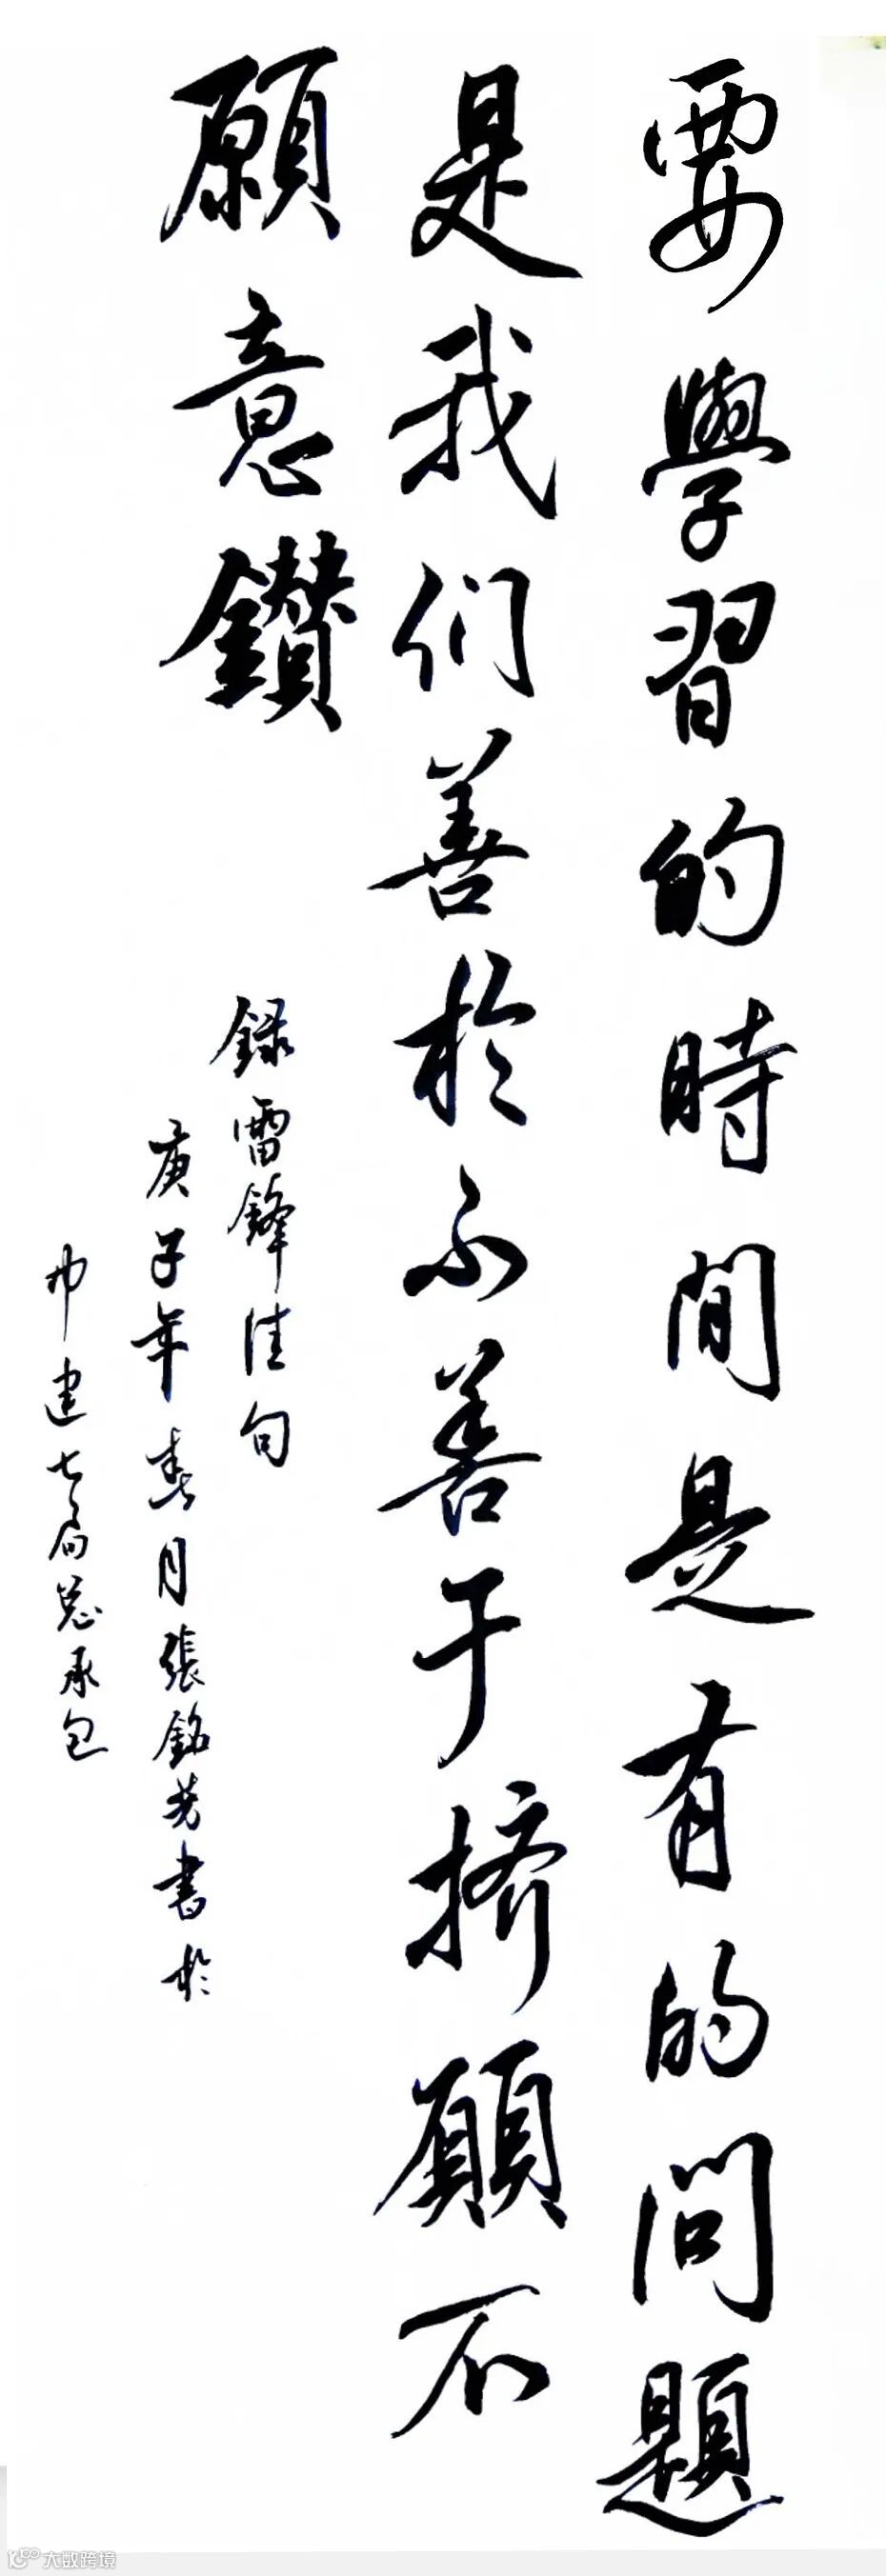 要學習的時間是有的問題
是我们善於不善于擠願不
願意鑽
録雷鋒佳句
庚子年春月張銘芳書於
中建七局总承包
大数跨境